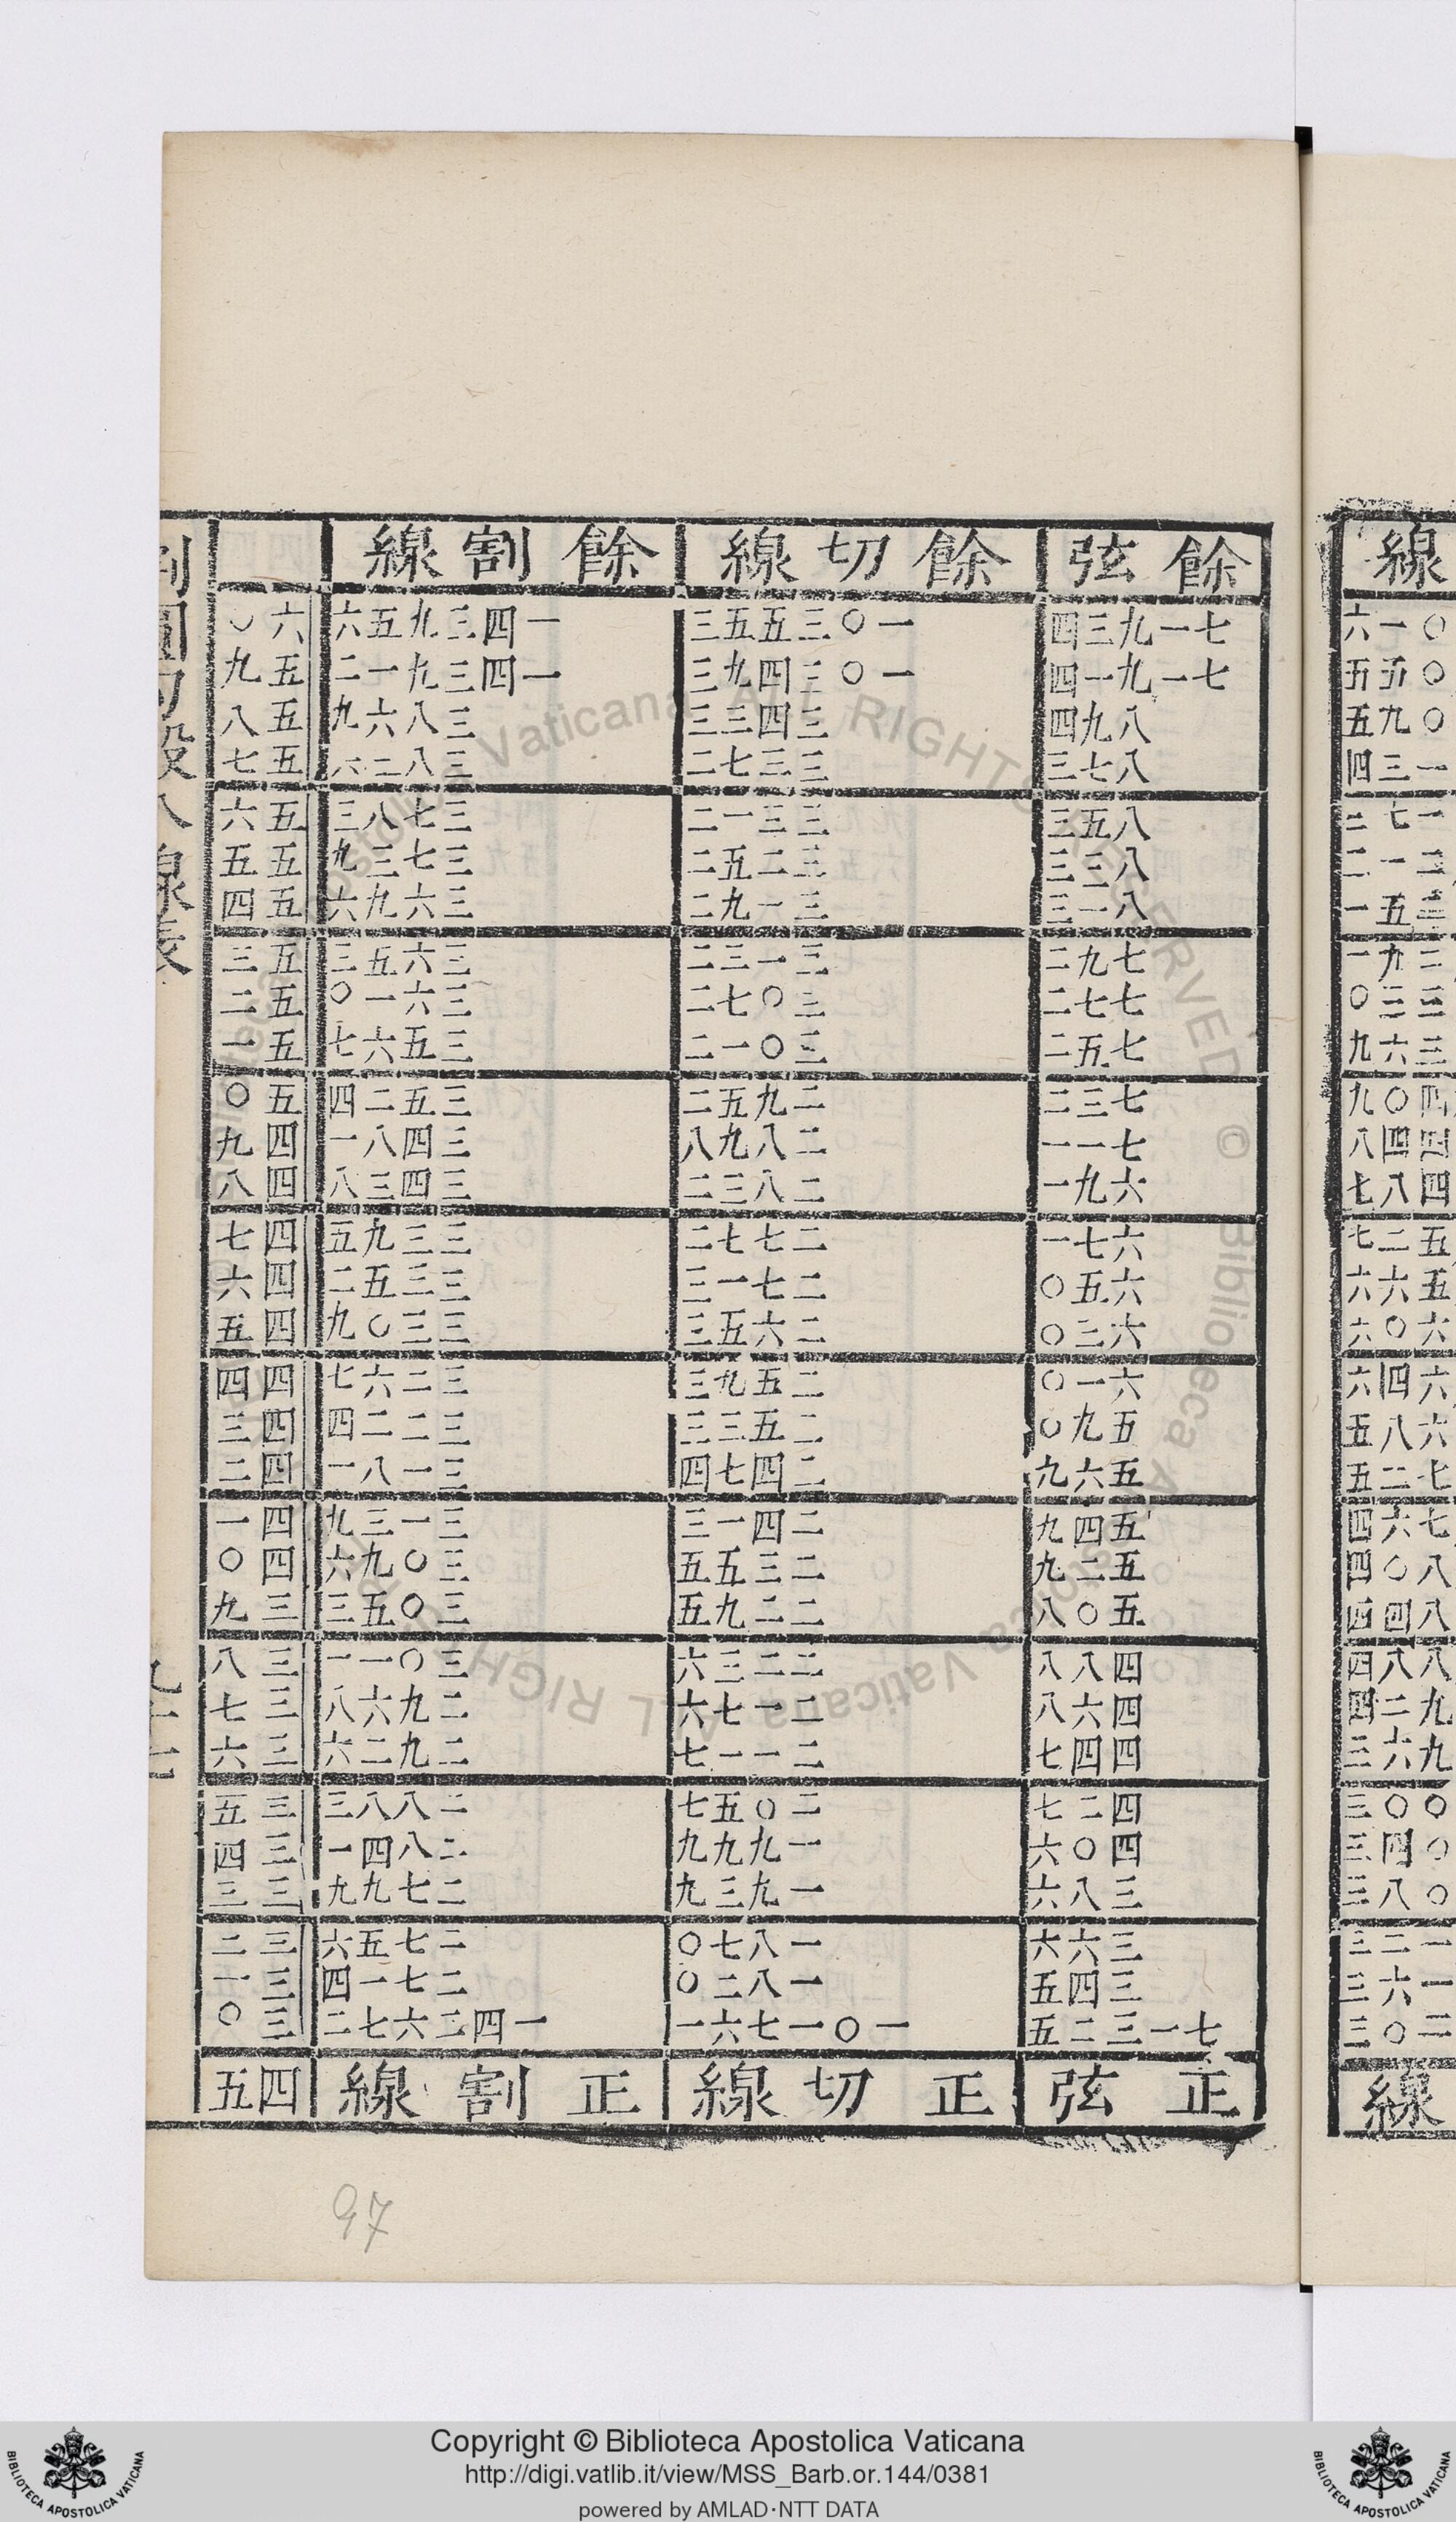 線
〇一六
〇五五
〇九五
一三四
一七三
二一二
三五一
三九一
三三〇
三六九
四〇九
四四八
四八七
五二七
五六六
六〇六
六四六
六八五
七二五
七六四
八〇四
八四四
八八四
九二四
九六三
〇〇三
〇四三
〇八三
一二三
一六三
二〇三
線
餘弦 餘切線 餘割線
七一九三四 一〇三五五三 一四三九五六 六〇
七一九一四 一〇三四九三 一四三九一二 五九
八九四 三四三三 三八六九 五八
八七三 三三七二 三八二六 五七
八五三 三三一二 三七八三 五六
八三三 三二五二 三七三九 五五
八一三 三一九二 三六九六 五四
七九二 三一三二 三六五三 五三
七七二 三〇七二 三六一〇 五二
七五二 三〇一二 三五六七 五一
七三二 二九五二 三五二四 五〇
七一一 二八九八 三四八一 四九
六九一 二八三二 三四三八 四八
六七一 二七七二 三三九五 四七
六五〇 二七一三 三三五二 四六
六三〇 二六五三 三三〇九 四五
六一〇 二五九三 三二六七 四四
五九〇 二五三三 三二二四 四三
五六九 二四七四 三一八一 四二
五四九 二四一三 三一三九 四一
五二九 二三五五 三〇九六 四〇
五〇八 二二九五 三〇五三 三九
四八八 二二三六 三〇一一 三八
四六八 二一七六 二九六八 三七
四四七 二一一七 二九二六 三六
四二七 二〇五七 二八八三 三五
四〇六 一九九九 二八四一 三四
三八六 一九三九 二七九九 三三
三六六 一八七〇 二七五六 三二
三四五 一八二〇 二七一四 三一
七一三二五 一〇一七六一 一四二六七二 三〇
正弦 正切線 正割線 四五
97
Copyright © Biblioteca Apostolica Vaticana
http://digi.vatlib.it/view/MSS_Barb.or.144/0381
powered by AMLAD·NTT DATA